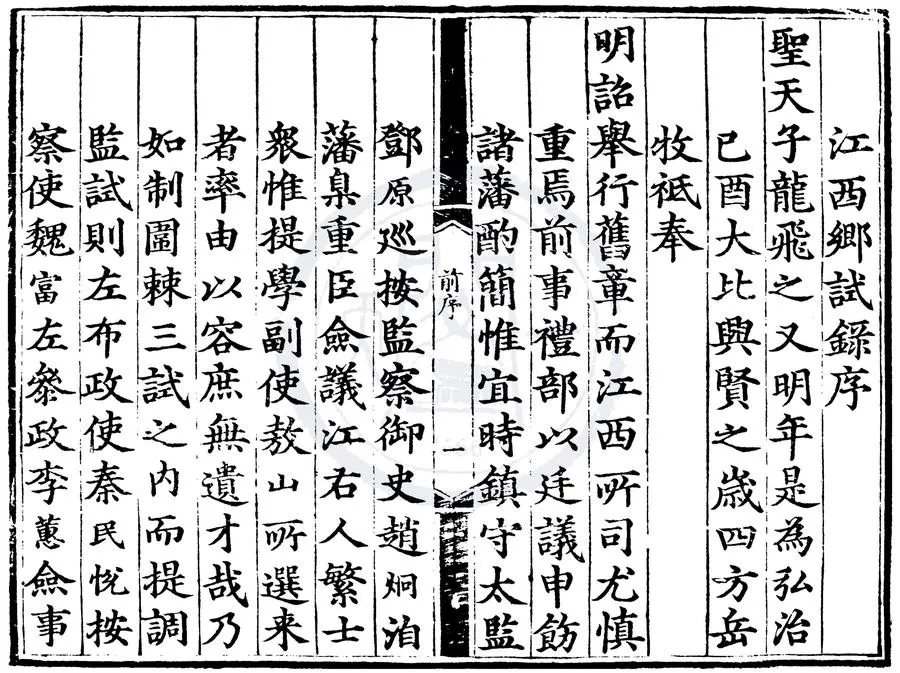 江西鄉試錄序
聖天子龍飛之又明年是為弘治
己酉大比興賢之歲四方岳
牧祗奉
明詔舉行舊章而江西所司尤慎
重焉前事禮部以廷議申飭
諸藩酌簡惟宜時鎮守太監
前序
一
鄧原巡按監察御史趙炯洎
藩臬重臣僉議江右人繁士
衆惟提學副使敖山所選来
者率由以容庶無遺才哉乃
如制圍棘三試之內而提調
監試則左布政使秦民悅按
察使魏富左參政李蕙僉事